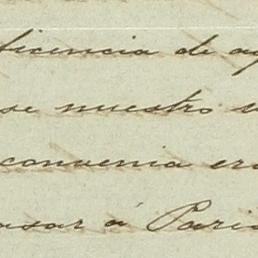 ficencia de
se nuestro
convenia
asar á Paris